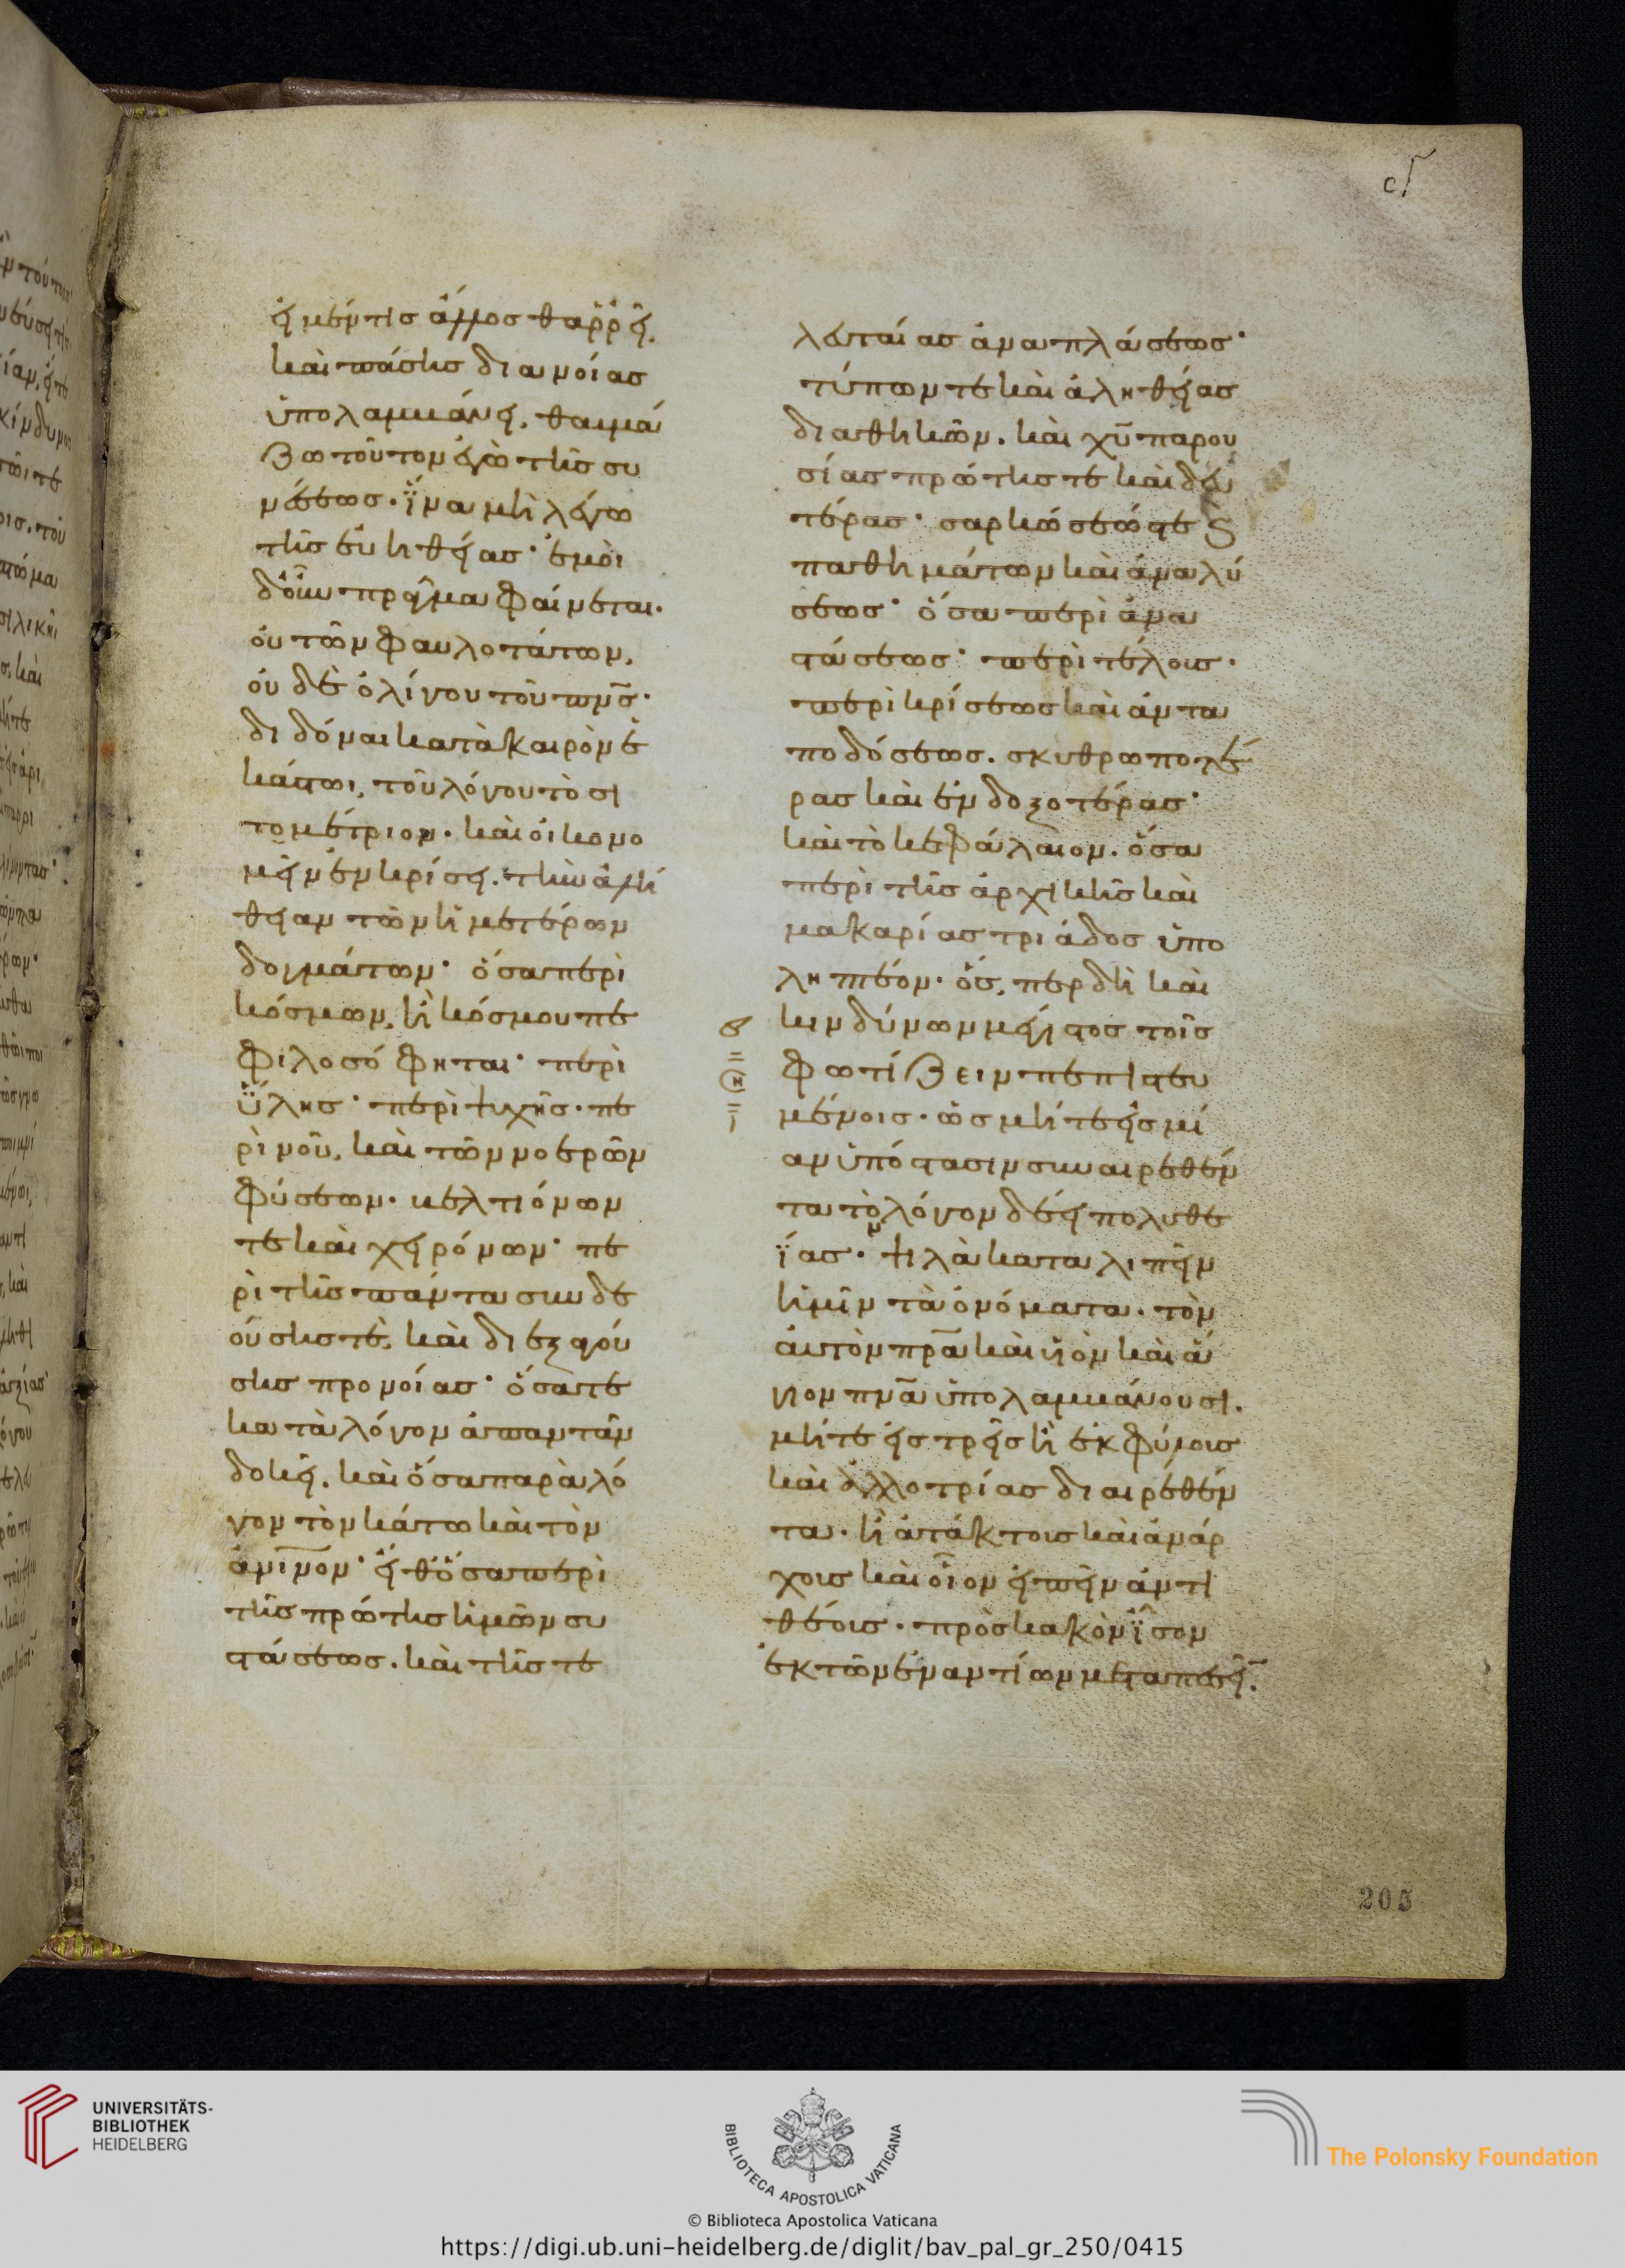 εἰ μέν τις ἄλλος θαρρεῖ,
καὶ πάσης διανοίας
ὑπολαμβάνει, θαυμά
ζω τοῦτον ἐγὼ τῆς συ
νέσεως. ἵνα μὴ λέγω
τῆς εὐηθείας· ἐμοὶ
δ' οὖν πρᾶγμα φαίνεται.
οὐ τῶν φαυλοτάτων,
οὐδὲ ὀλίγου τοῦ πν̅ς·
διδόναι κατὰ καιρὸν ἑ
κάστωι, τοῦ λόγου τὸ σι
τομέτριον. καὶ οἰκονο
μεῖν ἐν κρίσει. τὴν ἀλή
θειαν τῶν ἡμετέρων
δογμάτων· ὅσα περὶ
κόσμων, ἢ κόσμου πε
φιλοσόφηται· περὶ
ὕλης· περὶ ψυχῆς· πε
ρὶ νοῦ, καὶ τῶν νοερῶν
φύσεων. βελτιόνων
τε καὶ χειρόνων· πε
ρὶ τῆς πάντα συνδε
ούσης τὲ, καὶ διεξαγού
σης προνοίας· ὅσα τε
κατὰ λόγον ἀπαντᾶν
δοκεῖ. καὶ ὅσα παρὰ λό
γον τὸν κάτω καὶ τὸν
ἀν̅ινον· εἴ θ' ὅσα περὶ
τῆς πρώτης ἡμῶν συ
στάσεως. καὶ τῆς τε
λευταίας ἀναπλάσεως·
τύπων τε καὶ ἀληθείας
διαθηκῶν. καὶ χ̅υ παρου
σίας πρώτης τε καὶ δευ
τέρας· σαρκώσεώς τε ϗ
παθημάτων καὶ ἀναλύ
σεως· ὅσα περὶ ἀνα
στάσεως· περὶ τέλους.
περὶ κρίσεως καὶ ἀντα
ποδόσεως. σκυθρωποτέ
ρας καὶ ἐνδοξοτέρας·
καὶ τὸ κεφάλαιον. ὅσα
περὶ τῆς ἀρχικῆς καὶ
μακαρίας τριάδος ὑπο
ληπτέον. ὅσ, περ δὴ καὶ
κινδύνων μέγιστος τοῖς
φωτίζειν πεπιστευ
μένοις. ὡς μήτε εἰς μί
αν ὑπόστασιν συναιρεθέν
τα τὸν λόγον δέει πολυθε
ΐας. ψιλὰ καταλιπεῖν
ἡμῖν τὰ ὀνόματα. τὸν
αὐτὸν πρ̅α καὶ υἱὸν καὶ ἅ
γιον πν̅α ὑπολαμβάνουσι.
μήτε εἰς τρεῖς ἢ ἐκφύλους
καὶ ἀλλοτρίας διαιρεθέν
τα. ἢ ἀτάκτους καὶ ἀνάρ
χους καὶ οἷον εἰπεῖν ἀντι
θέους. πρὸς κακὸν ἴσον
ἐκ τῶν ἐναντίων μεταπεσεῖ̅.
205
UNIVERSITÄTS-
BIBLIOTHEK
HEIDELBERG
BIBLIOTECA APOSTOLICA VATICANA
The Polonsky Foundation
© Biblioteca Apostolica Vaticana
https://digi.ub.uni-heidelberg.de/diglit/bav_pal_gr_250/0415